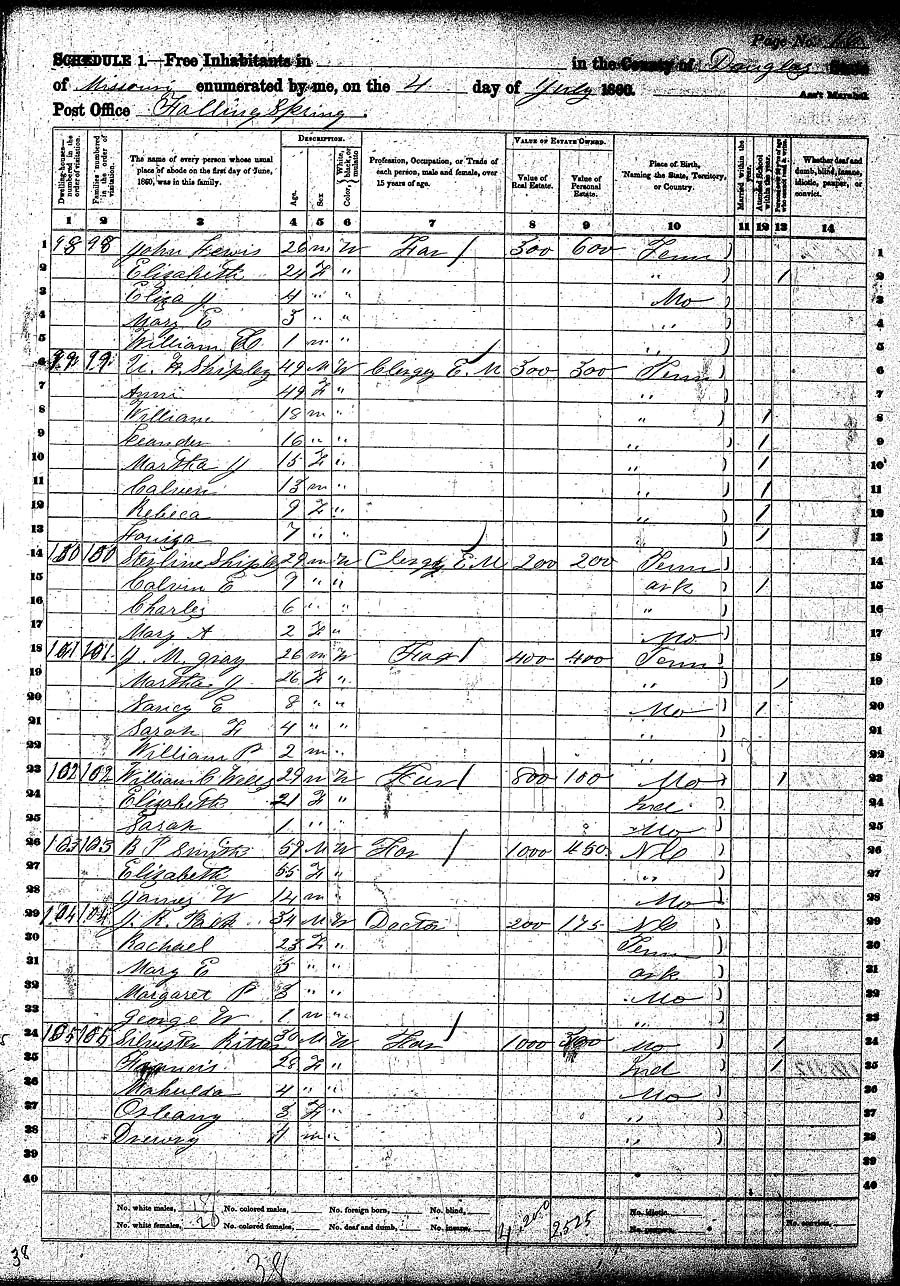 Page No.
SCHEDULE 1.—Free Inhabitants in in the County of Douglas State
of Missouri enumerated by me, on the 4 day of July 1860. Ass't Marshal.
Post Office Falling Spring
Dwelling-houses—numbered in the order of visitation.
Families numbered in the order of visitation.
The name of every person whose usual place of abode on the first day of June, 1860, was in this family.
DESCRIPTION.
Age.
Sex.
Color, White, black, or mulatto
Profession, Occupation, or Trade of each person, male and female, over 15 years of age.
VALUE OF ESTATE OWNED.
Value of Real Estate.
Value of Personal Estate.
Place of Birth, Naming the State, Territory, or Country.
Married within the year.
Attended School within the year.
Whether deaf and dumb, blind, insane, idiotic, pauper, or convict.
1 2 3 4 5 6 7 8 9 10 11 12 13 14
1 98 98 John Lewis 26 m W Far 300 600 Tenn 1
2 Elizabeth 24 F " " 1 2
3 Eliza J 4 " " Mo 3
4 Mary E 3 " " " 4
5 William 1 m " " 5
6 99 99 Shipley 49 M W Clergy E. M 300 300 Tenn 6
7 Ann 49 F " " 7
8 William 18 m " " 1 8
9 Leander 16 " " " 1 9
10 Martha J 15 F " " 1 10
11 Calvin 13 m " " 1 11
12 Rebeca 9 F " " 1 12
13 Louisa 7 " " " 1 13
14 100 100 Sterline Shipley 29 m W Clergy E M 200 200 Tenn 14
15 Calvin E 9 " " ark 1 15
16 Charles 6 " " " 16
17 Mary A 2 F " Mo 17
18 101 101 J. M. Gray 26 m W Far 400 400 Tenn 18
19 Martha J 26 F " " 1 19
20 Nancy E 8 " " Mo 1 20
21 Sarah F 4 " " " 21
22 William P 2 m " " 22
23 102 102 William C Wells 29 m W Far 800 100 Mo 1 23
24 Elizabeth 21 F " Ind 24
25 Sarah 1 " " Mo 25
26 103 103 B P Smith 59 M W Far 1000 450 N C 26
27 Elizabeth 55 F " " 27
28 James W 14 m " Mo 28
29 104 104 J. R. 34 M W Doctor 200 175 N C 29
30 Rachael 23 F " Tenn 30
31 Mary E 5 " " ark 31
32 Margaret P 3 " " Mo 32
33 George W 1 m " " 33
34 105 105 Silvester Ritter 30 M W Far 1000 300 Mo 1 34
35 Francis 28 F " Ind 1 35
36 Mahulda 4 " " Mo 36
37 Orleany 3 F " " 37
38 Drewry m " " 38
39 39
40 40
No. white males, 18 No. colored males, No. foreign born, No. blind, No. idiotic,
No. white females, 20 No. colored females, No. deaf and dumb, No. insane, 2525 No. paupers, No. convicts,
38 38